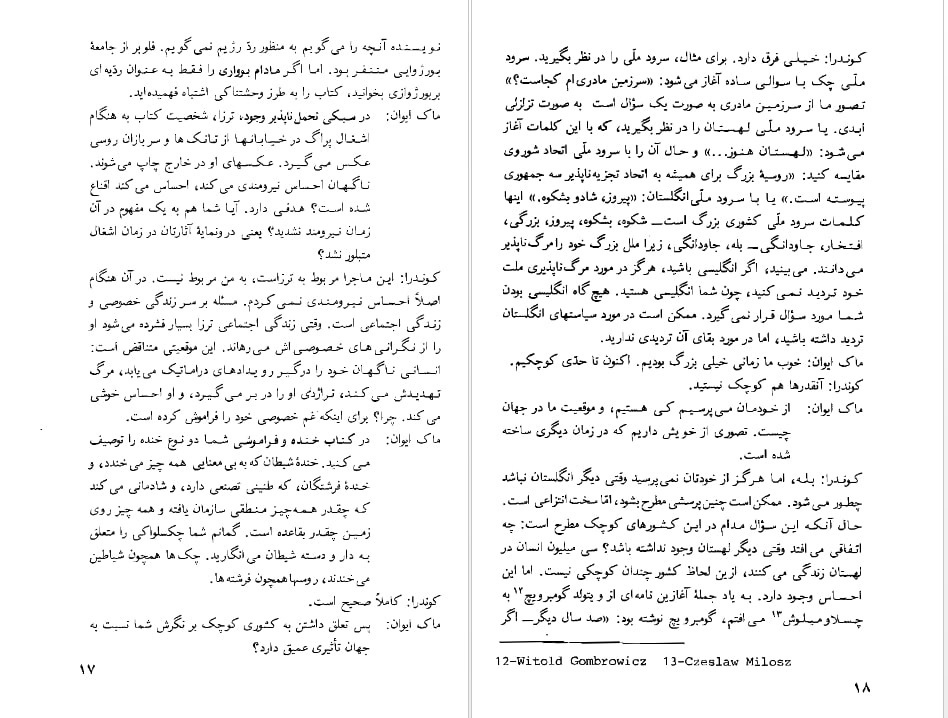 نویسنده آنچه را می‌گویم به منظور ردّ رژیم نمی‌گویم. فلوبر از جامعهٔ
بورژوایی متنفر بود. اما اگر مادام بوواری را فقط به عنوان ردّیه‌ای
بربورژوازی بخوانید، کتاب را به طرز وحشتناکی اشتباه فهمیده‌اید.
ماک ایوان: در سبکی تحمل‌ناپذیر وجود، ترزا، شخصیت کتاب به هنگام
اشغال پراگ در خیابانها از تانک‌ها و سربازان روسی
عکس می‌گیرد. عکسهای او در خارج چاپ می‌شوند.
ناگهان احساس نیرومندی می‌کند، احساس می‌کند اقناع
شده است؟ هدفی دارد. آیا شما هم به یک مفهوم در آن
زمان نیرومند نشدید؟ یعنی درونمایهٔ آثارتان در زمان اشغال
متبلور نشد؟
کوندرا: این ماجرا مربوط به ترزاست، به من مربوط نیست. در آن هنگام
اصلاً احساس نیرومندی نمی‌کردم. مسئله بر سر زندگی خصوصی و
زندگی اجتماعی است. وقتی زندگی اجتماعی ترزا بسیار فشرده می‌شود او
را از نگرانی‌های خصوصی‌اش می‌رهاند. این موقعیتی متناقض است:
انسانی ناگهان خود را درگیر رویدادهای دراماتیک می‌یابد، مرگ
تهدیدش می‌کند، تراژدی او را در بر می‌گیرد، و او احساس خوشی
می‌کند. چرا؟ برای اینکه غم خصوصی خود را فراموش کرده است.
ماک ایوان: در کتاب خنده و فراموشی شما دو نوع خنده را توصیف
می‌کنید. خندهٔ شیطان که به بی‌معنایی همه چیز می‌خندد، و
خندهٔ فرشتگان، که طنینی تصنعی دارد، و شادمانی می‌کند
که چقدر همه‌چیز منطقی سازمان یافته و همه چیز روی
زمین چقدر بقاعده است. گمانم شما چکسلواکی را متعلق
به دار و دسته شیطان می‌انگارید. چک‌ها همچون شیاطین
می‌خندند، روسها همچون فرشته‌ها.
کوندرا: کاملاً صحیح است.
ماک ایوان: پس تعلق داشتن به کشوری کوچک بر نگرش شما نسبت به
جهان تأثیری عمیق دارد؟
۱۷
کوندرا: خیلی فرق دارد. برای مثال، سرود ملّی را در نظر بگیرید. سرود
ملّی چک با سوالی ساده آغاز می‌شود: «سرزمین مادری‌ام کجاست؟»
تصور ما از سرزمین مادری به صورت یک سؤال است به صورت تزلزلی
ابدی. یا سرود ملّی لهستان را در نظر بگیرید، که با این کلمات آغاز
می‌شود: «لهستان هنوز...» و حال آن را با سرود ملّی اتحاد شوروی
مقایسه کنید: «روسیهٔ بزرگ برای همیشه به اتحاد تجزیه‌ناپذیر سه جمهوری
پیوسته است.» یا با سرود ملّی انگلستان: «پیروز، شاد و بشکوه.» اینها
کلمات سرود ملّی کشوری بزرگ است — شکوه، بشکوه، پیروز، بزرگی،
افتخار، جاودانگی — بله، جاودانگی، زیرا ملل بزرگ خود را مرگ‌ناپذیر
می‌دانند. می‌بینید، اگر انگلیسی باشید، هرگز در مورد مرگ‌ناپذیری ملت
خود تردید نمی‌کنید، چون شما انگلیسی هستید. هیچ‌گاه انگلیسی بودن
شما مورد سؤال قرار نمی‌گیرد. ممکن است در مورد سیاستهای انگلستان
تردید داشته باشید، اما در مورد بقای آن تردیدی ندارید.
ماک ایوان: خوب ما زمانی خیلی بزرگ بودیم. اکنون تا حدّی کوچکیم.
کوندرا: آنقدرها هم کوچک نیستید.
ماک ایوان: از خودمان می‌پرسیم کی هستیم، و موقعیت ما در جهان
چیست. تصوری از خویش داریم که در زمان دیگری ساخته
شده است.
کوندرا: بله، اما هرگز از خودتان نمی‌پرسید وقتی دیگر انگلستان نباشد
چطور می‌شود. ممکن است چنین پرسشی مطرح بشود، امّا سخت انتزاعی است.
حال آنکه این سؤال مدام در این کشورهای کوچک مطرح است: چه
اتفاقی می‌افتد وقتی دیگر لهستان وجود نداشته باشد؟ سی میلیون انسان در
لهستان زندگی می‌کنند، از این لحاظ کشور چندان کوچکی نیست. اما این
احساس وجود دارد. به یاد جملهٔ آغازین نامه‌ای از ویتولد گومبرویچ۱۲ به
چسلاو میلوش۱۳ می‌افتم، گومبرویچ نوشته بود: «صد سال دیگر — اگر
12-Witold Gombrowicz 13-Czeslaw Milosz
۱۸